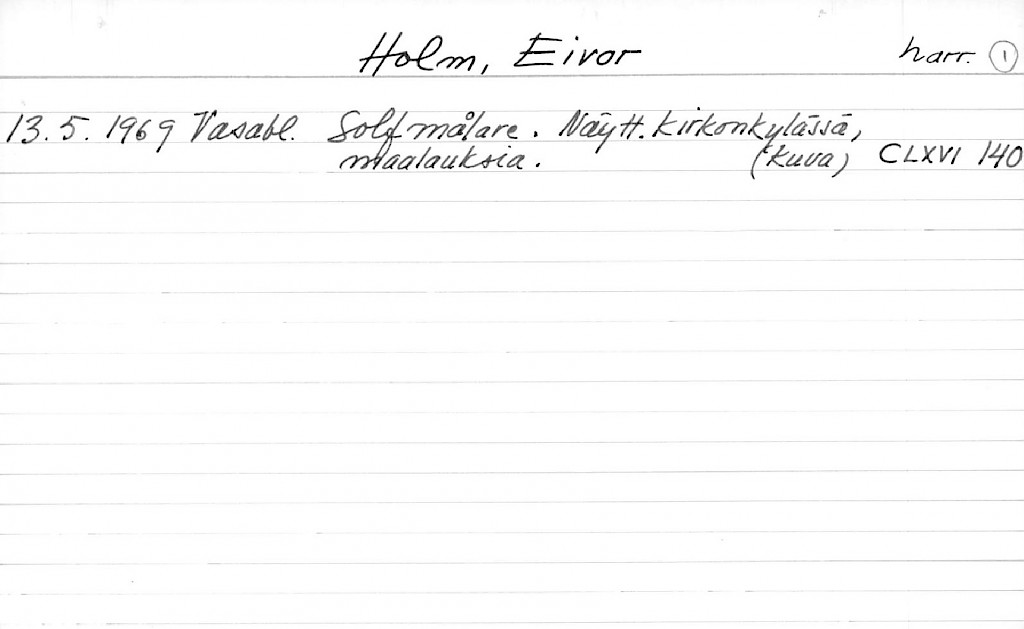 Holm, Eivor harr. 1
13.5.1969 Vasabl. Solf målare. Näytt. kirkonkylässä,
maalauksia. (kuva) CLXVI 140